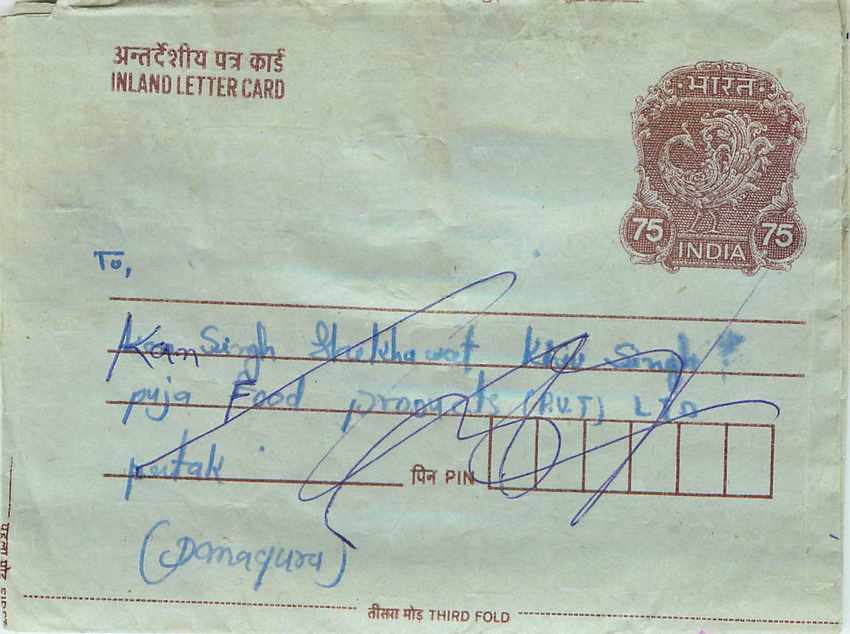 अन्तर्देशीय पत्र कार्ड
INLAND LETTER CARD
भारत
75 75
INDIA
To,
Kan Singh Shekhawat Singh
puja Food products (P.V.T) LTD
पिन PIN
तीसरा मोड़ THIRD FOLD